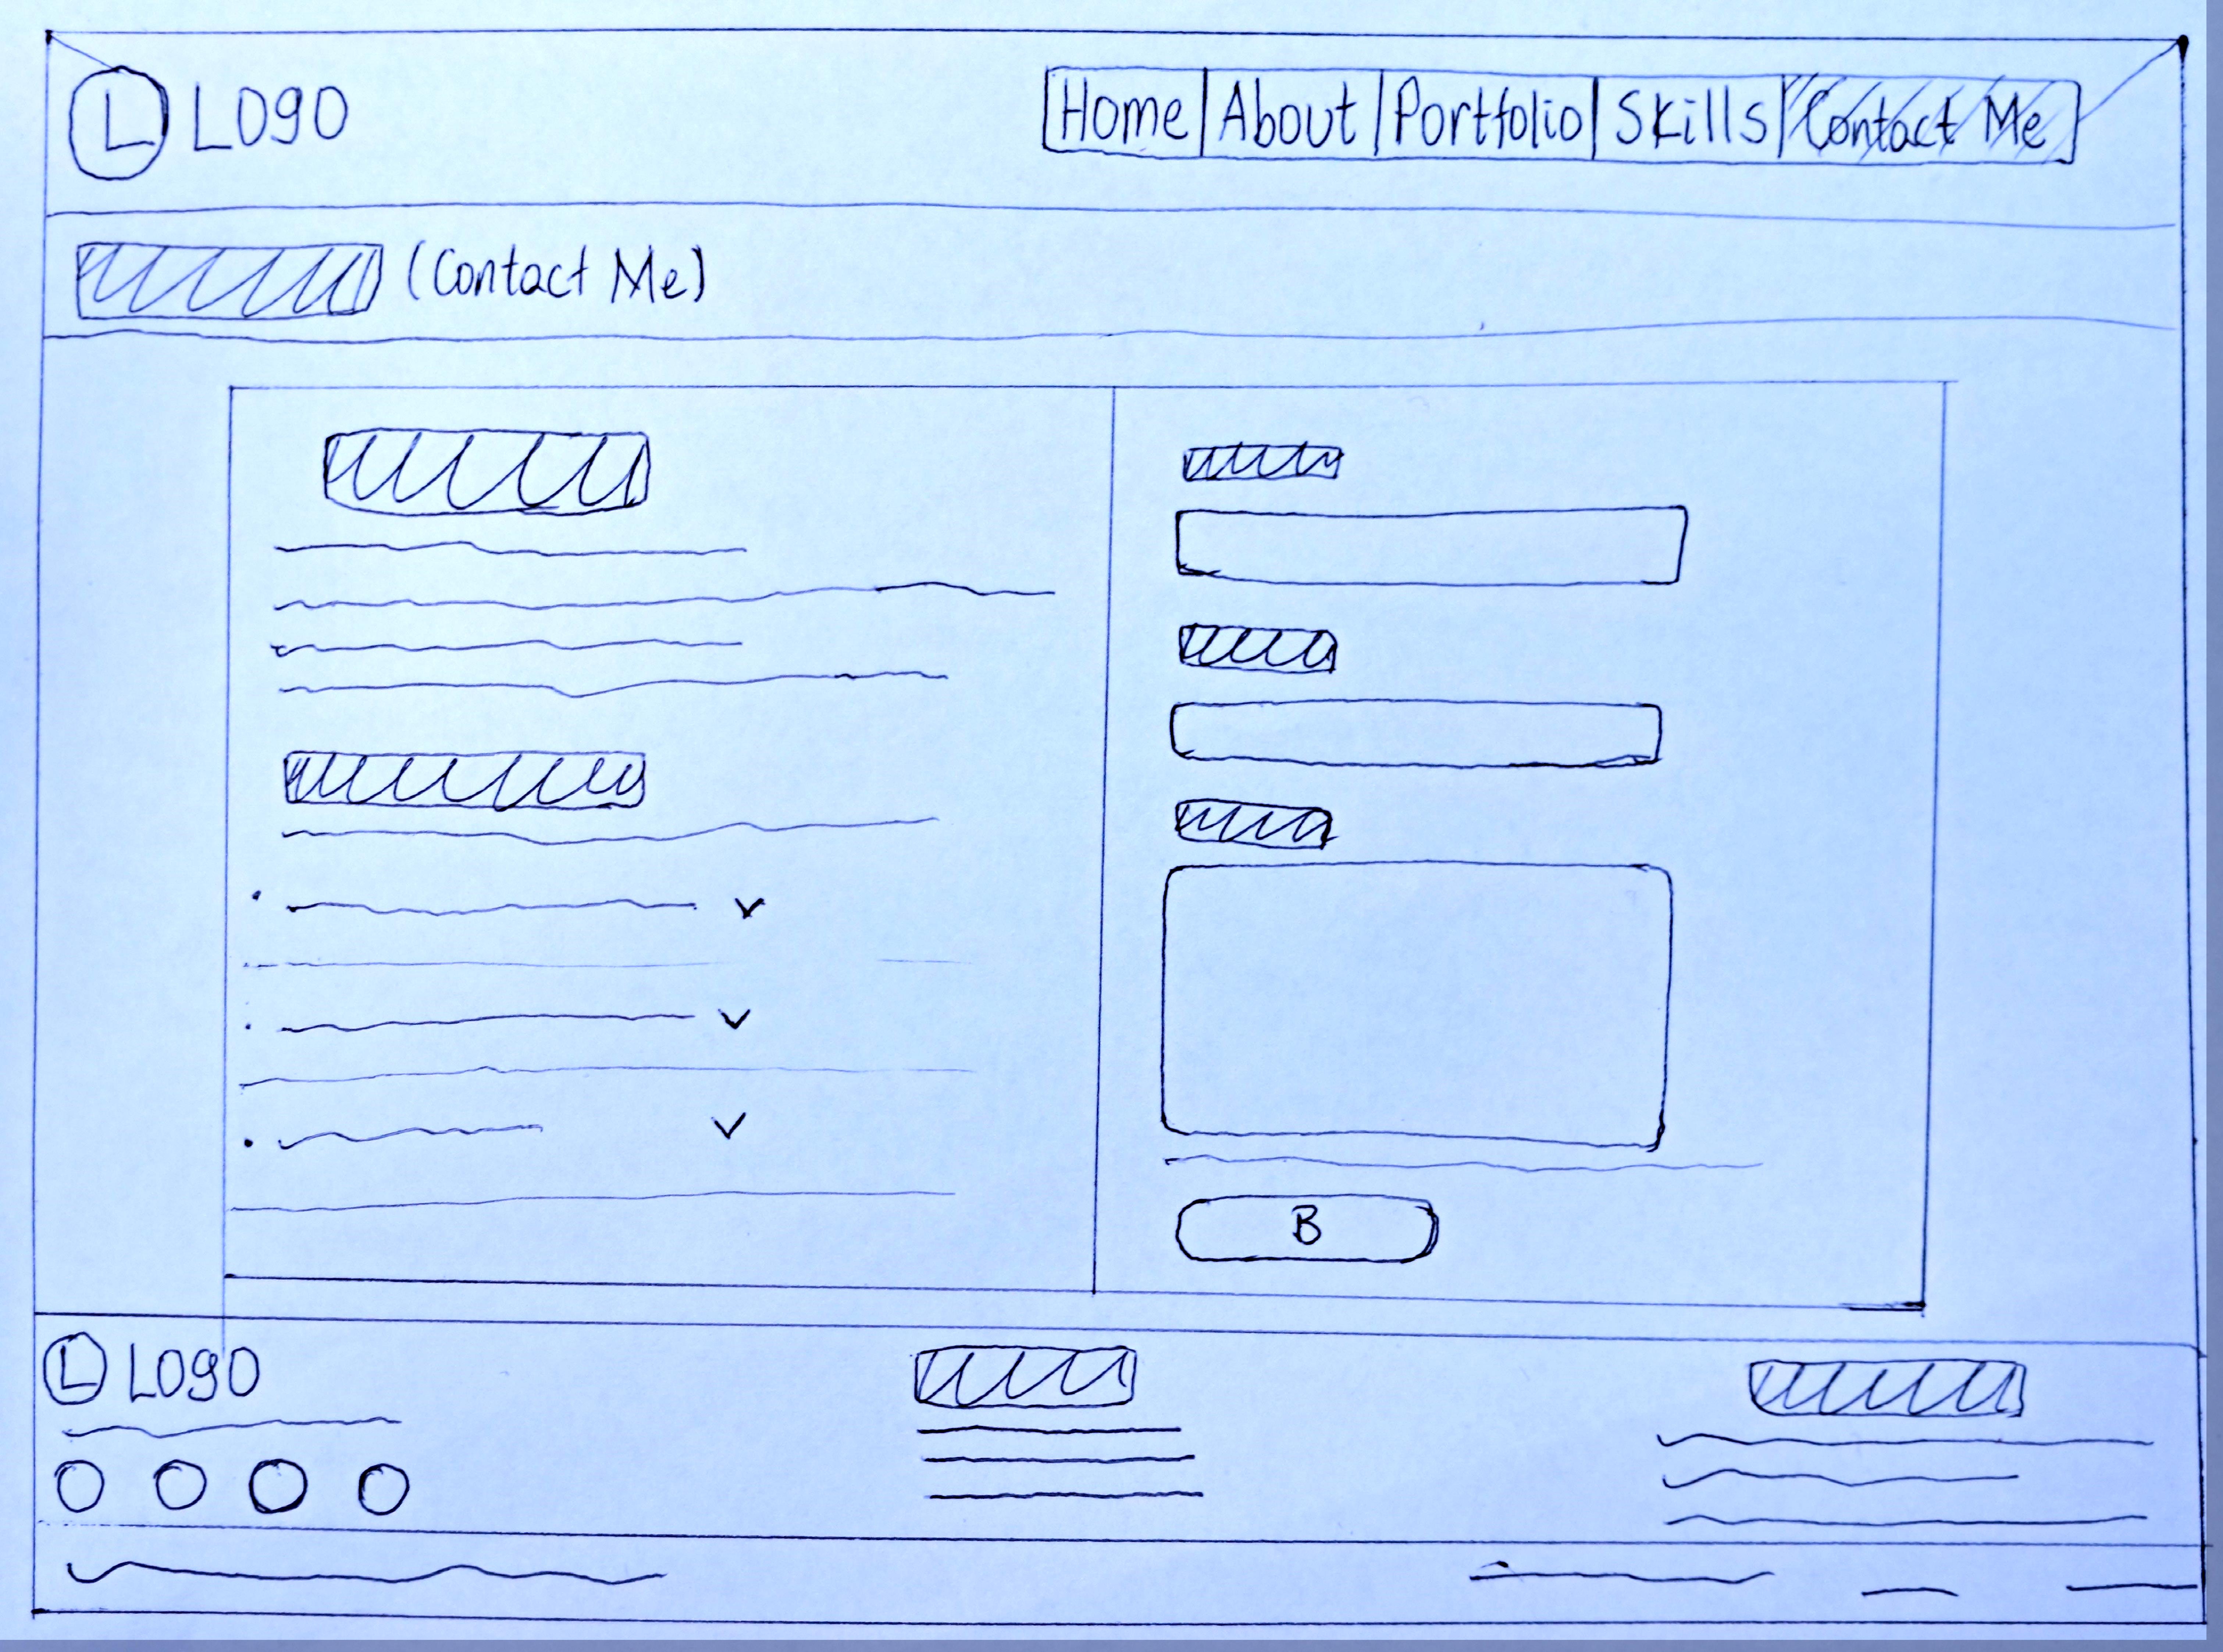 L Logo
Home About Portfolio Skills Contact Me
(Contact Me)
B
L Logo